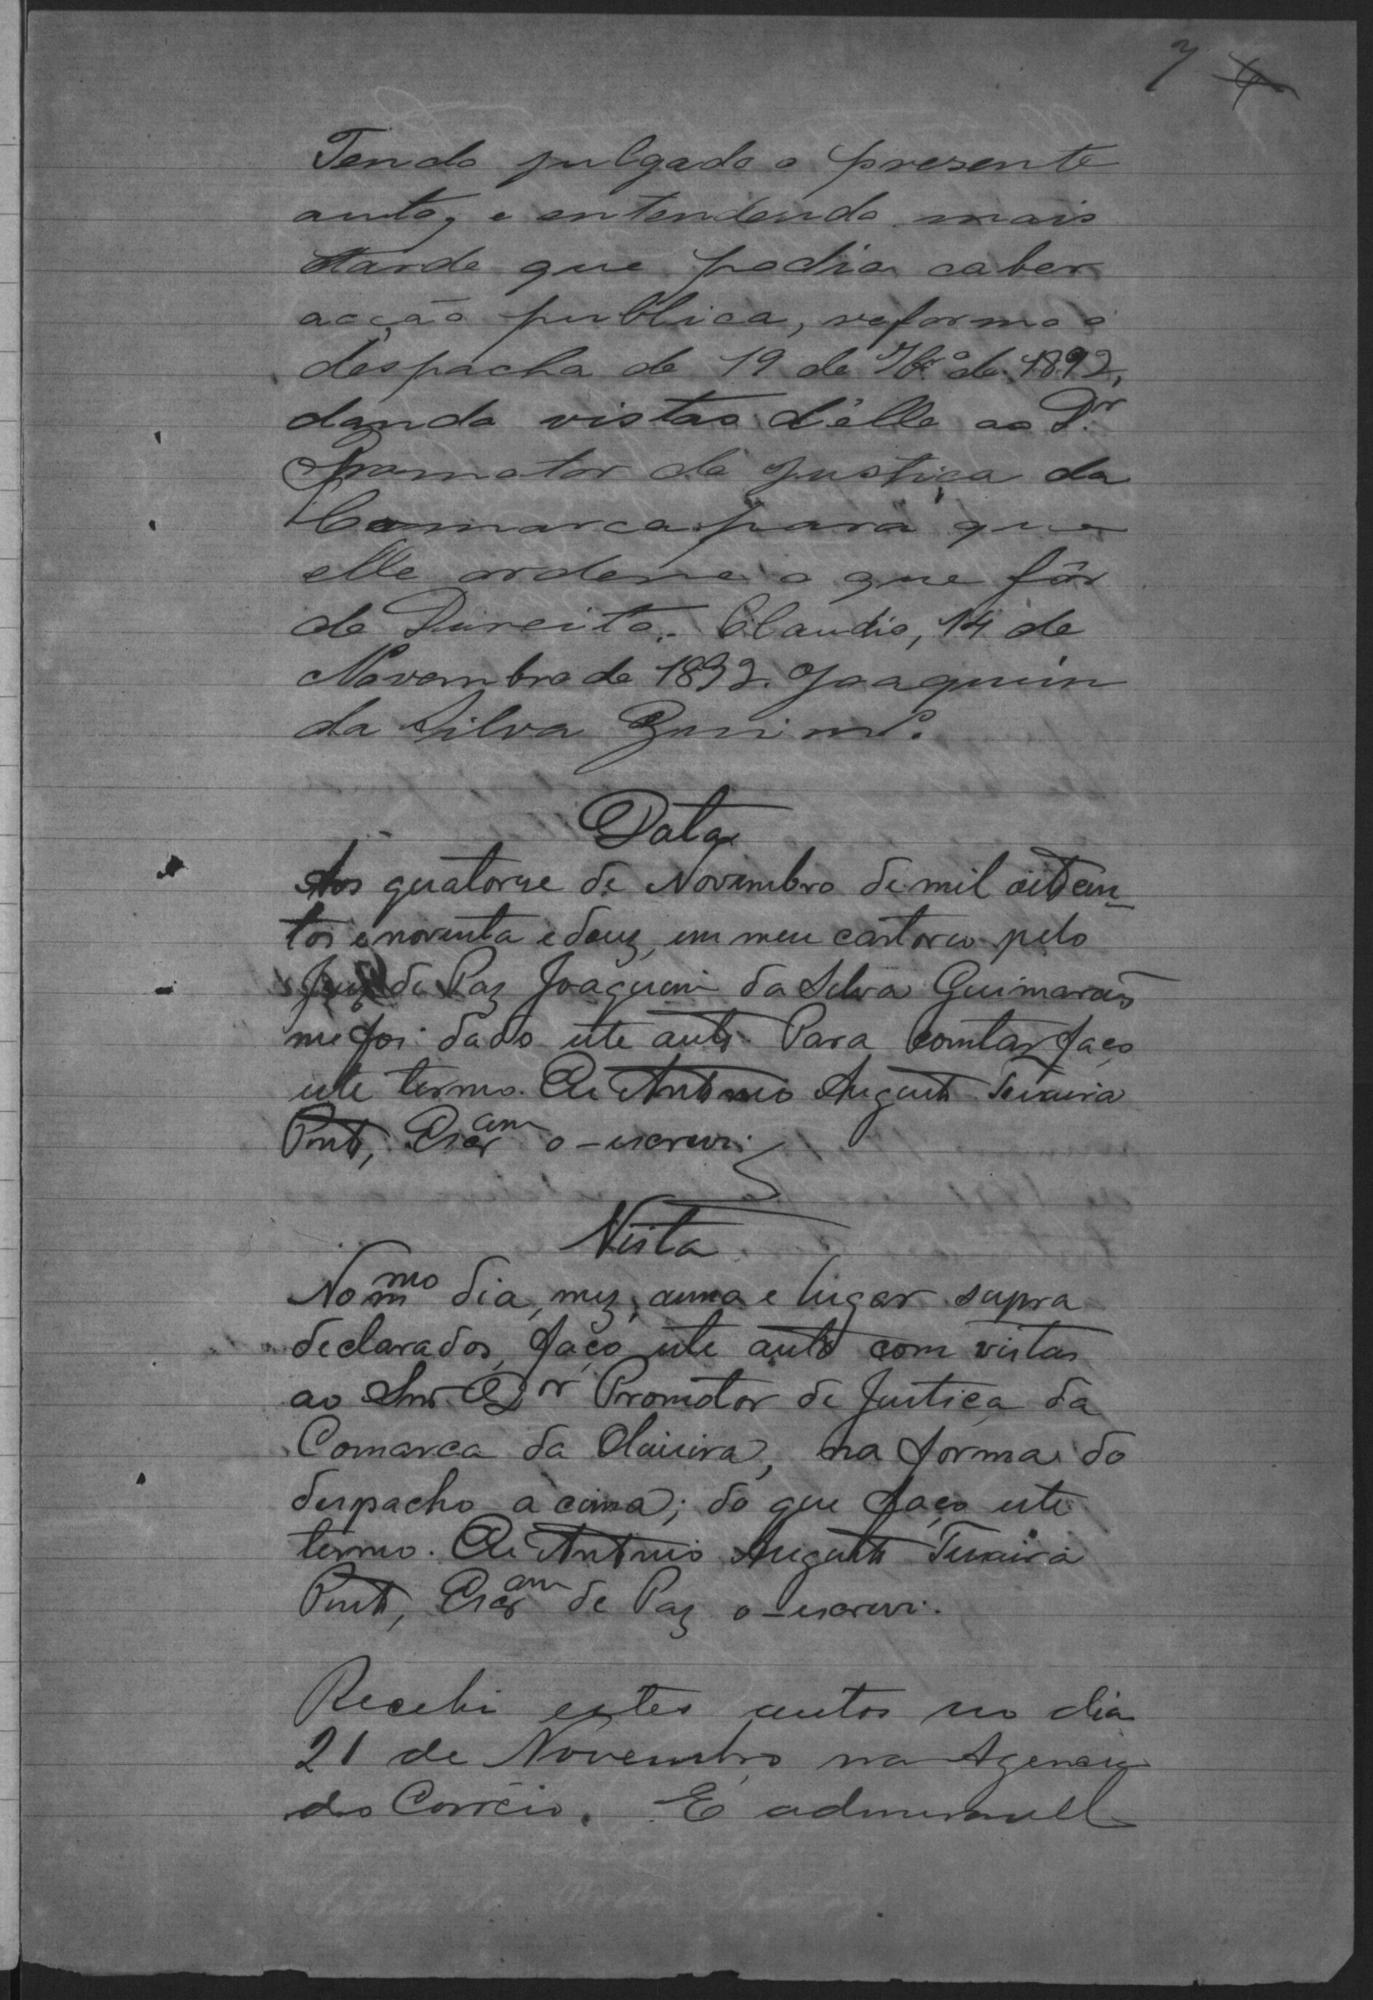 7
Tendo julgado o presente
auto, e entendendo mais
tarde que podia caber
acção publica, reformo o
despacho de 19 de 7br.o de 1892,
dando vistas d'elle ao Dr.
Promotor de Justiça da
Comarca para que
elle ordene o que fôr
de Direito. Claudio, 14 de
Novembro de 1892. Joaquim
da Silva Guim.es
Data
Aos quatorse de Novembro de mil oitocen-
tos e noventa e dous, em meu cartorio pelo
Juiz de Paz Joaquim da Silva Guimarães
me foi dado este auto. Para constar faço
este termo. Eu Antonio Augusto Teixeira
Pinto, Escram o-escrevi.
Vista
No mmo dia, mez, anno e lugar supra
declarados, faço este auto com vistas
ao Snr Dor Promotor de Justiça da
Comarca da Oliveira, na forma do
despacho acima; do que faço este
termo. Eu Antonio Augusto Teixeira
Pinto, Escram de Paz o-escrevi.
Recebi estes autos no dia
21 de Novembro na Agencia
do Correio. É admiravel